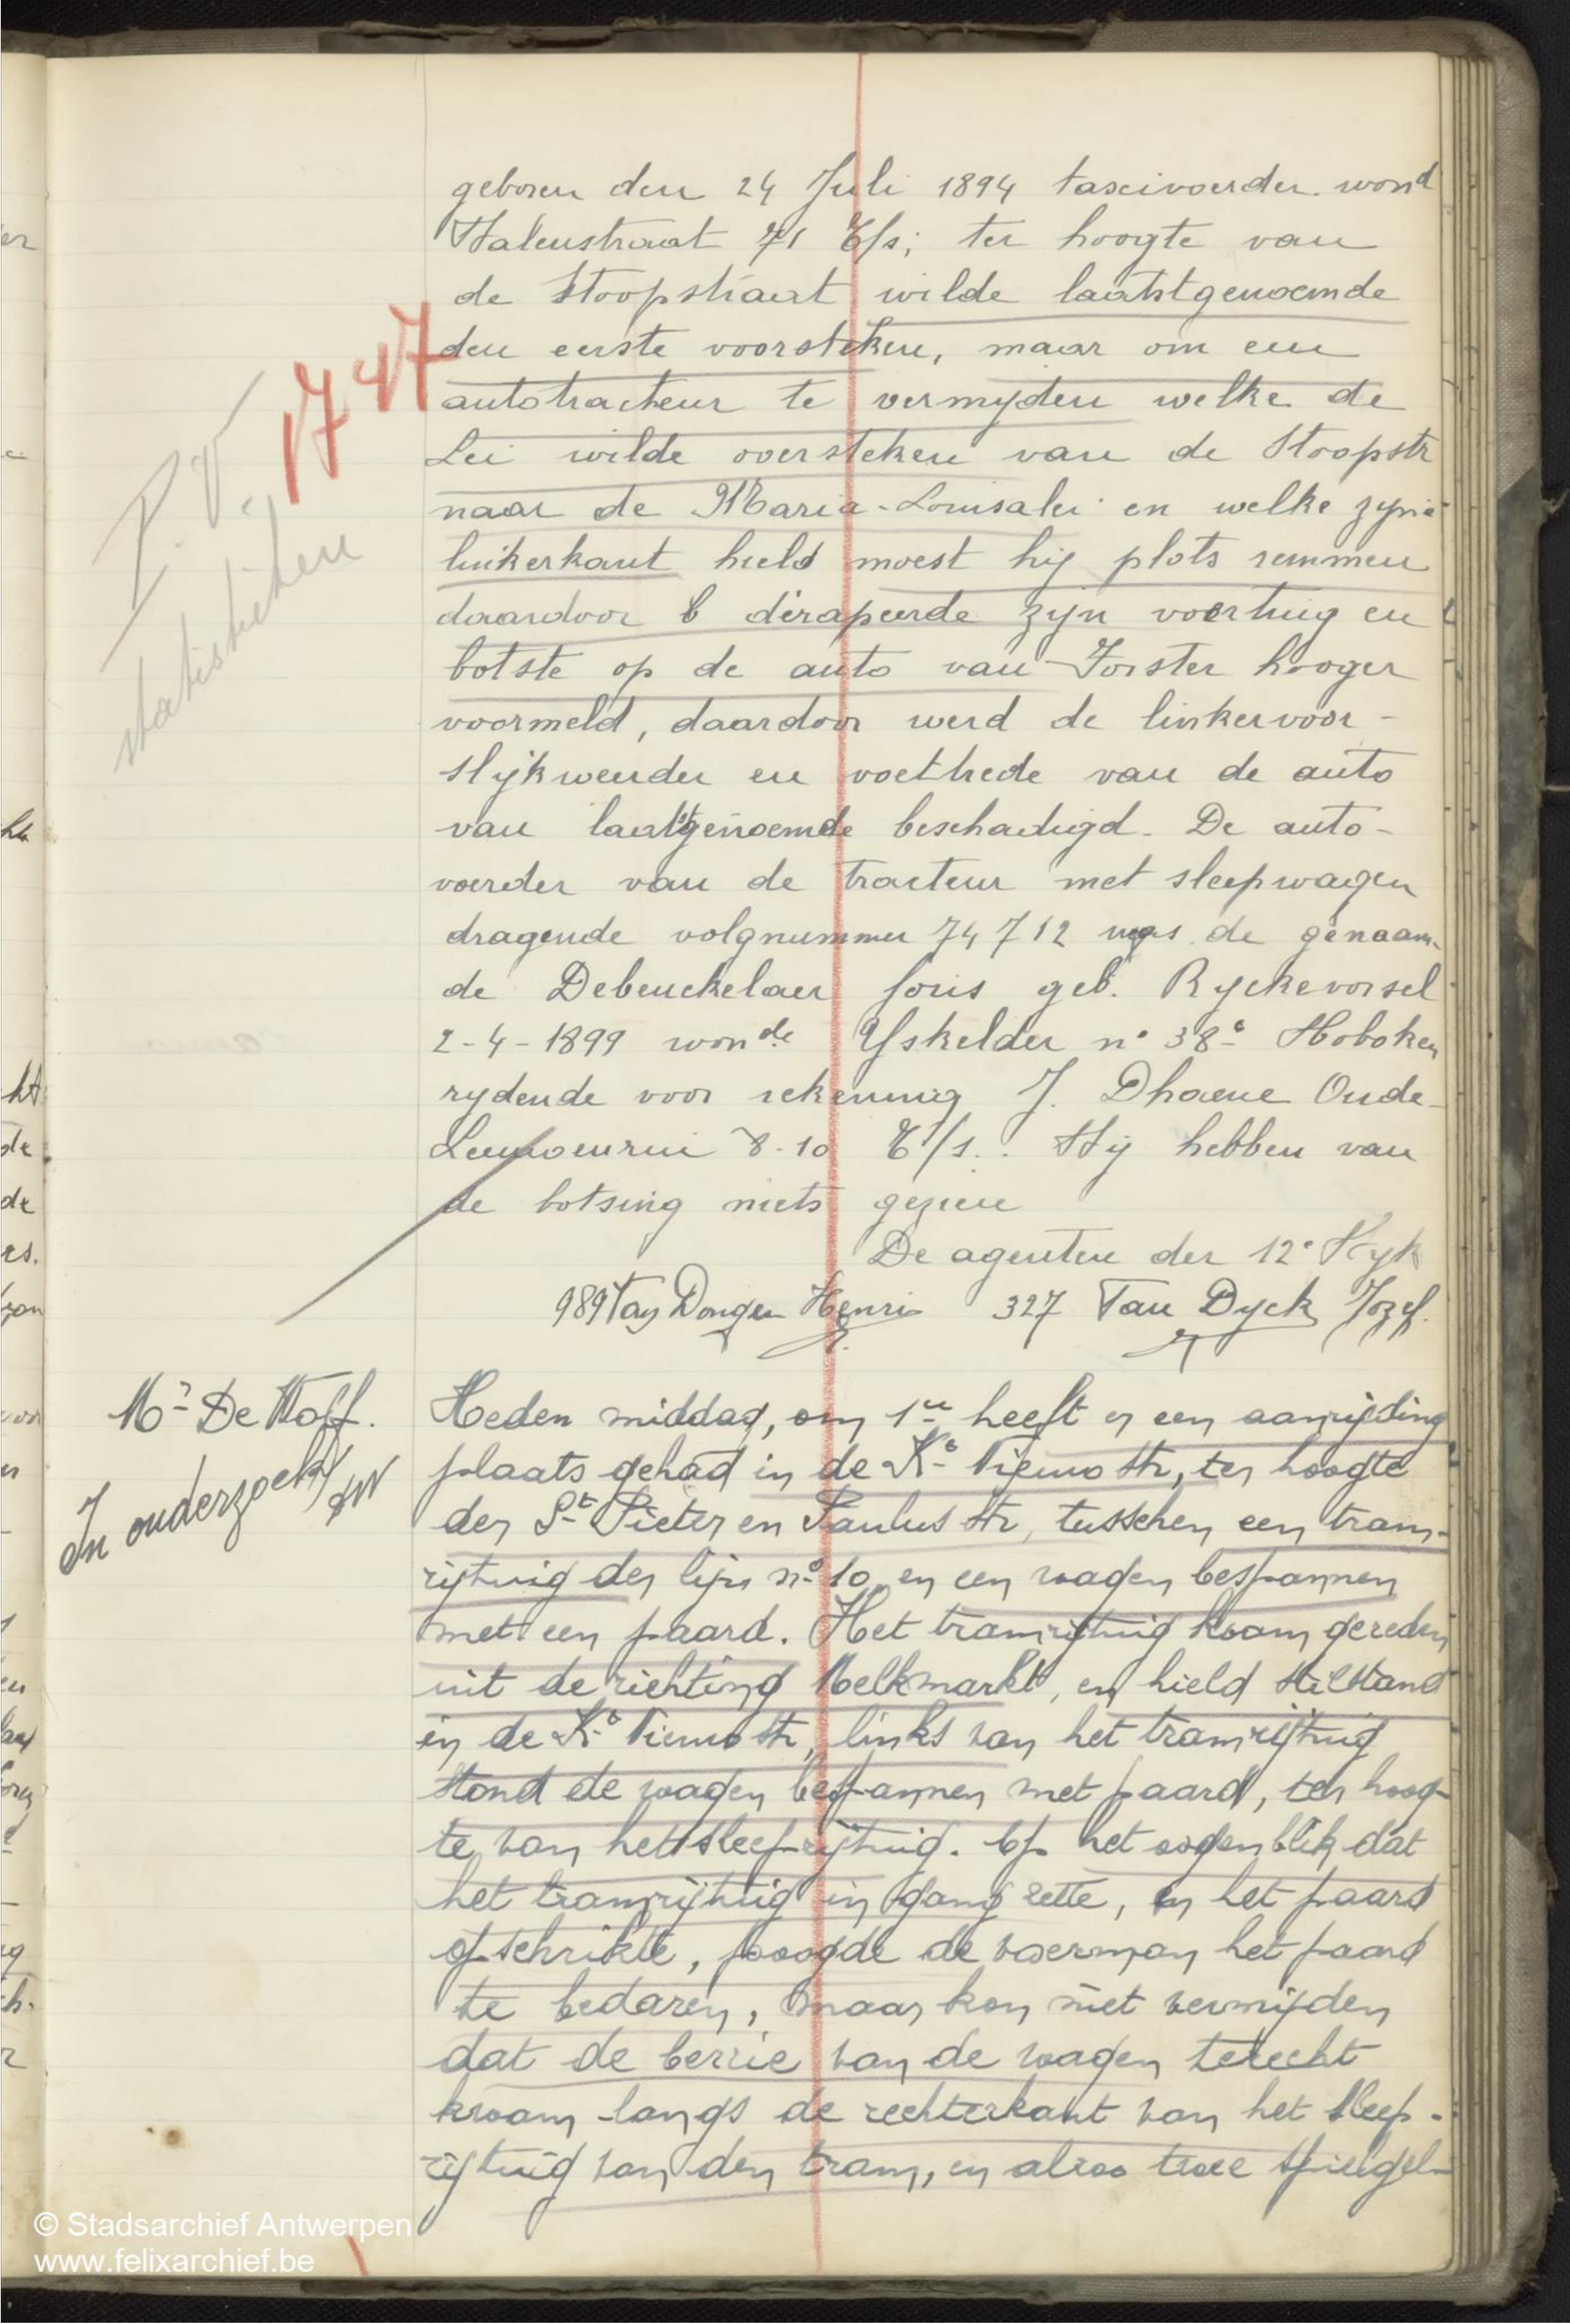 geboren den 24 Juli 1894 taxivoerder wond
Halenstraat 71 E/s; ter hoogte van
de Stoopstraat wilde laatstgenoemde
den eerste voorsteken, maar om een
autotracteur te vermyden welke de
Lei wilde oversteken van de Stoopstr
naar de Maria-Louisalei en welke zyne
linkerkant hield moest hij plots remmen
daardoor derapeerde zijn voertuig en
botste op de auto van Forster hooger
voormeld, daardoor werd de linkervoor-
slijkwender en voettrede van de auto
van laatstgenoemde beschadigd. De auto-
voerder van de tracteur met sleepwagen
dragende volgnummer 74712 was de genaam-
de Debeuckelaer Joris geb. Ryckevorsel
2-4-1899 wonde Yskelder n° 38c Hoboken
rydende voor rekening J. Dhaene Oude-
Leeuwenrui 8-10 E/s. Hij hebben van
de botsing niets gezien
De agenten der 12e Wyk
989 Van Dongen Henri 327 Van Dyck Jozef.
P.V. 1747
statistieken
Mr De Wolf.
In onderzoek
Heden middag, om 1 uu heeft er een aanrijding
plaats gehad in de Ke Nieuwstr, ter hoogte
der St Pieter en Paulus str, tusschen een tram-
rijtuig der lijn n° 10 en een wagen bespannen
met een paard. Het tramrijtuig kwam gereden
uit de richting Melkmarkt, en hield stilstand
in de Ke Nieuwstr, links van het tramrijtuig
stond de wagen bespannen met paard, ter hoog-
te van het sleeprijtuig. Op het oogenblik dat
het tramrijtuig in gang zette, en het paard
opschrikte, poogde de voerman het paard
te bedaren, maar kon niet vermijden
dat de berrie van de wagen terecht
kwam langs de rechterkant van het sleep-
rijtuig van den tram, en alzoo twee spiegel-
© Stadsarchief Antwerpen
www.felixarchief.be